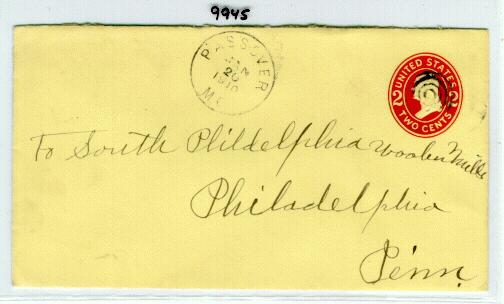 9945
PASSOVER
JAN
20
1910
MO.
UNITED STATES
2 2
TWO CENTS
To South Phildelphia Woolen Mills
Philadelphia
Penn.